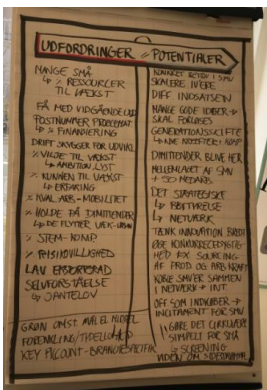 UDFORDRINGER // POTENTIALER
MANGE SMÅ
↳ % RESSOURCER
TIL VÆKST
FÅ MED VIDGÅENDE UD
POSTNUMMER PROBLEMAT.
↳ % FINANSIERING
DRIFT SKYGGER FOR UDVIKL
% VILJE TIL VÆKST
↳ AMBITION LYST
% KUNNEN TIL VÆKST
↳ ERFARING
% KVAL. ARB - MOBILITET
% HOLDE PÅ DIMITTENDER
↳ DE FLYTTER VÆK
% STEM-KOMP
% RISIKOVILLIGHED
LAV
SELVFORSTÅELSE
↳ JANTELOV
GRØN OMST. MÅL EL MIDDEL
FORENKLING/TYDELIGHED
KEY ACCOUNT - BRANCHESPECIFIK
KONKRET I SMV
SKALERE IVÆRK
DIFF INDSATSEN
MANGE GODE IDBÆR
SKAL FORLØSES
GENERATIONSSKIFTE
↳ NYE KRÆFTER
DIMITTENDER BLIVE HER
MELLEMLAGET AF SMV
+50 MEDARB.
DET STRATEGISKE
↳ BESTYRELSE
↳ NETVÆRK
TÆNK INNOVATION BREDT
ØGE KONKURRENCEDYGTIG
MED FX SOURCING
AF PROD OG ARB KRAFT
KOBLE SMV'ER SAMMEN
I NETVÆRK + INT
OFF SOM INDKØBER →
INCITAMENT FOR SMV
GØRE DET CIRKULÆRE
SIMPELT FOR SMÅ
↳ SCREENING
VIDEN OM